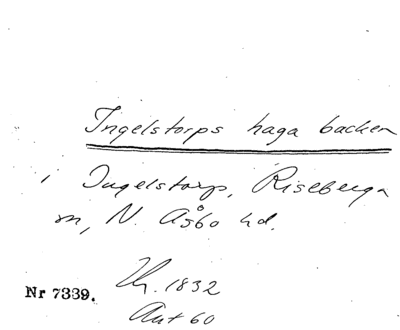 Ingelstorps haga backen
i Ingelstorp, Riseberga
sn, N. Åsbo hd.
Nr 7339.
Th. 1832
Ant 60